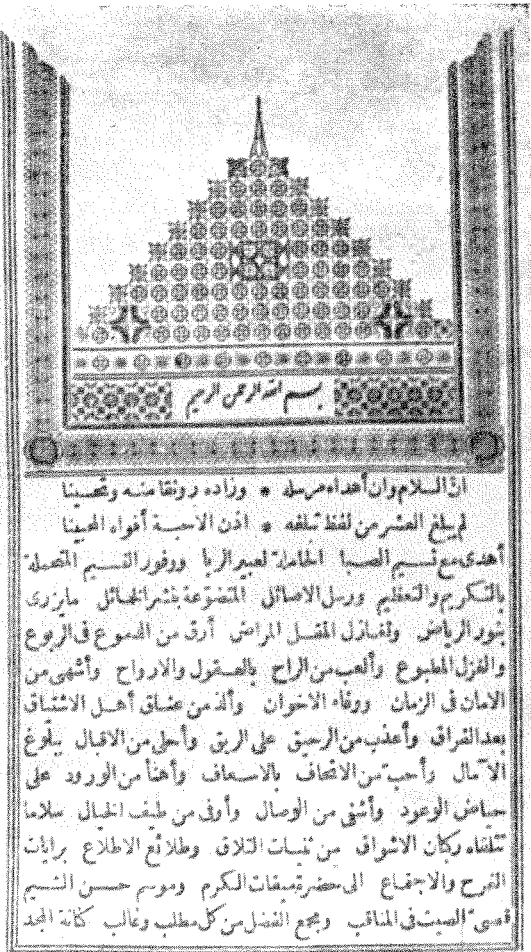 بسم الله الرحمن الرحيم
ان السلام وان أهداه مرسله * وزاده رونقا منه وتحسينا
لم يبلغ العشر من لفظ تبلغه * اذن الاحبة أفواه المحبينا
أهدى مع نسيم الصبا الحاملة لعبير الربا ووفور القسيم المتحملة
بالتكريم والتعظيم ورسل الاصائل المتضوعة بنشر الخمائل ما يزرى
بنور الرياض ولغازل المقل المراض أرق من الدموع فى الربوع
والغزل المطبوع وألعب من الراح بالعقول والارواح وأشهى من
الامان فى الزمان ووفاء الاخوان وألذ من عناق أهل الاشتياق
بعد الفراق وأعذب من الرحيق على الريق وأحلى من الاقبال ببلوغ
الآمال وأحب من الاتحاف بالاسعاف وأهنأ من الورود على
حياض الوعود وأشفى من الوصال وأوفى من طيف الخيال سلاما
تتلقاه ركبان الاشواق من ثنيات التلاق وطلائع الاطلاع برايات
الفرح والاجتماع الى حضرة ميقات الكرم وموسم حسن الشيم
قصى الصيت فى المناقب ومجمع الفضل من كل مطلب وغالب كنانة المجد